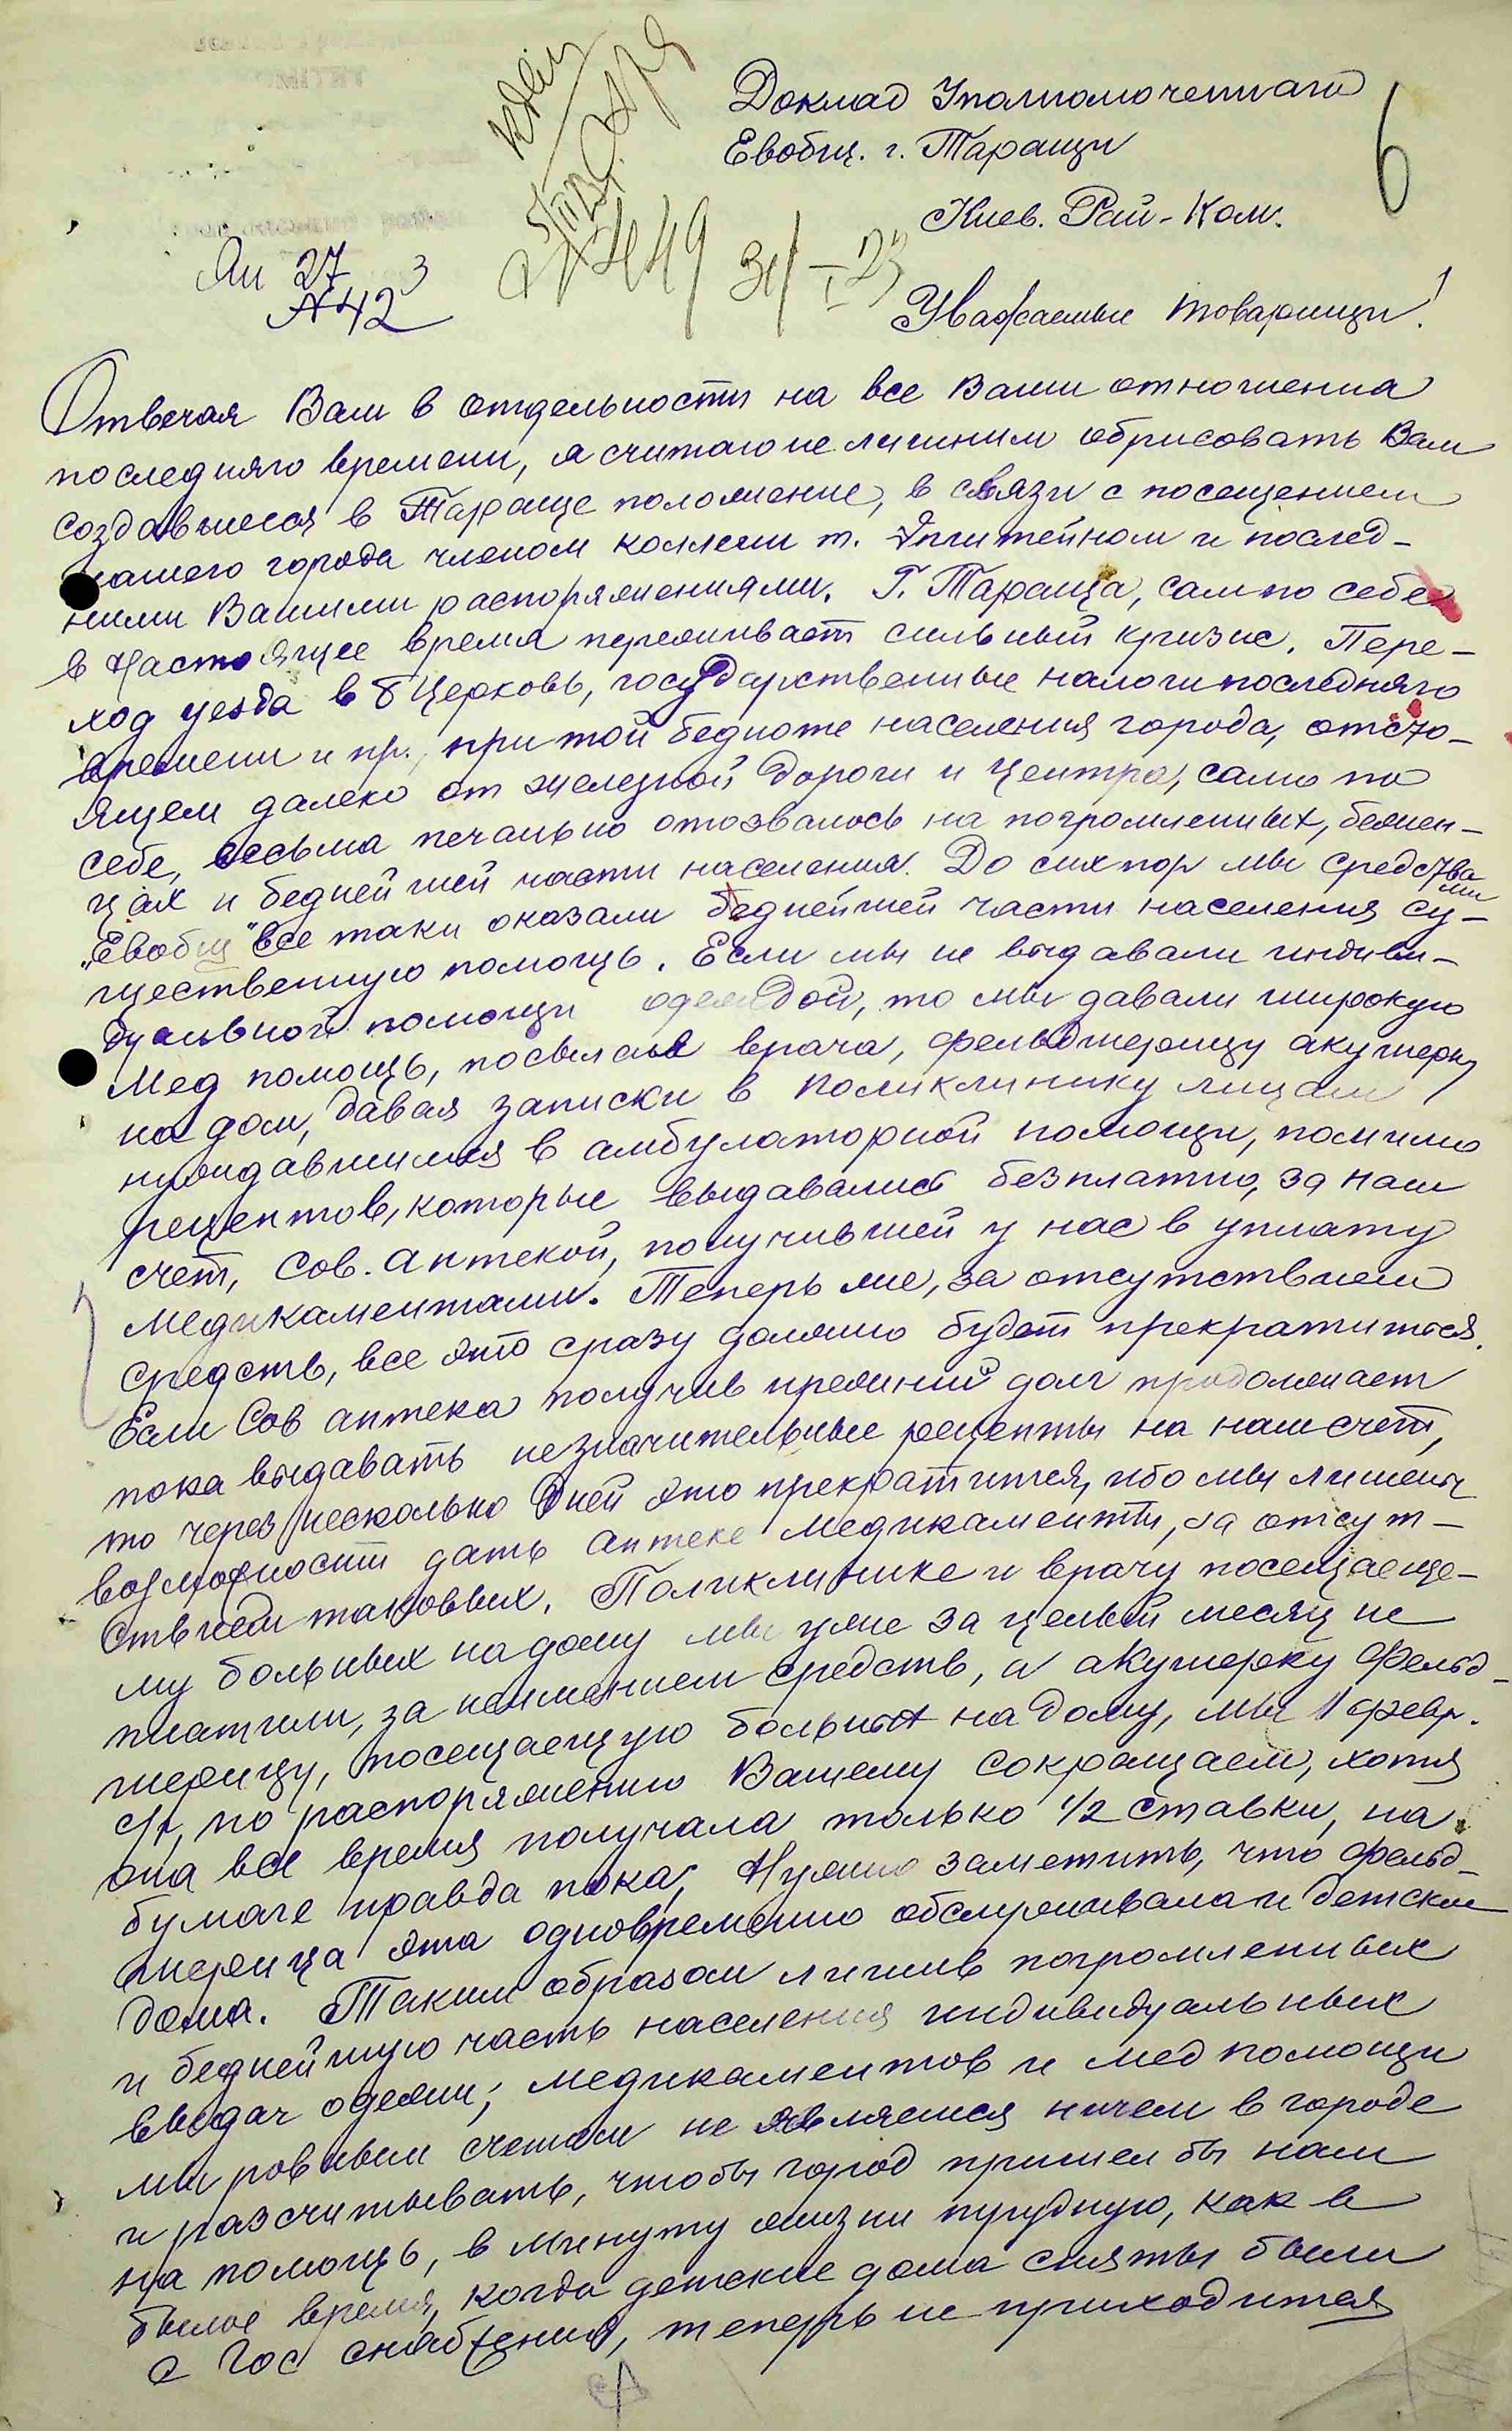 Доклад Уполномоченнаго
Евобщ. г. Таращи
6
Киев. Рай-Ком.
Ян 27 3
№ 42
№ 449 31/I-23
Уважаемые товарищи!
Отвечая Вам в отдельности на все Ваши отношения
последняго времени, я считаю не лишним обрисовать Вам
создавшееся в Тараще положение, в связи с посещением
нашего города членом коллегии т. Эпштейном и послед-
ними Вашими распоряжениями. Г. Тараща, сам по себе
в настоящее время переживает сильный кризис. Пере-
ход уезда в Б Церковь, государственные налоги последняго
времени и пр., при той бедноте населения города, отсто-
ящем далеко от железной дороги и центра, само по
себе, весьма печально отозвалось на погромленных, бежен-
цах и беднейшей части населения. До сих пор мы средства
ми
„Евобщ" все таки оказали беднейшей части населения су-
щественную помощь. Если мы не выдавали индиви-
дуальной помощи одеждой, то мы давали широкую
Мед помощь, посылая врача, фельдшерицу акушерку
на дом, давая записки в поликлинику лицам
нуждавшимся в амбулаторной помощи, помимо
рецептов, которые выдавались безплатно, за наш
счет, Сов. аптекой, получившей у нас в уплату
медикаментами. Теперь же, за отсутствием
средств, все это сразу должно будет прекратиться.
Если Сов аптека получив прежний долг продолжает
пока выдавать незначительные рецепты на наш счет,
то через несколько дней это прекратится, ибо мы лишены
возможности дать аптеке медикаменты, за отсут-
ствием таковых. Поликлинике и врачу посещающе-
му больных на дому мы уже за целый месяц не
платили, за неимением средств, а акушерку фельд-
шерицу, посещающую больных на дому, мы 1 февр.
с/г, по распоряжению Вашему сокращаем, хотя
она все время получала только 1/2 ставки, на
бумаге правда пока. Нужно заметить, что фельд-
шерица эта одновременно обслуживала и детские
дома. Таким образом лишив погромленных
и беднейшую часть населения индивидуальных
выдач одежи, медикаментов и мед помощи
мы ровным счетом не являемся ничем в городе
и разсчитывать, чтобы город пришел бы нам
на помощь, в минуту жизни трудную, как в
былое время, когда детские дома сняты были
с Гос снабжения, теперь не приходится